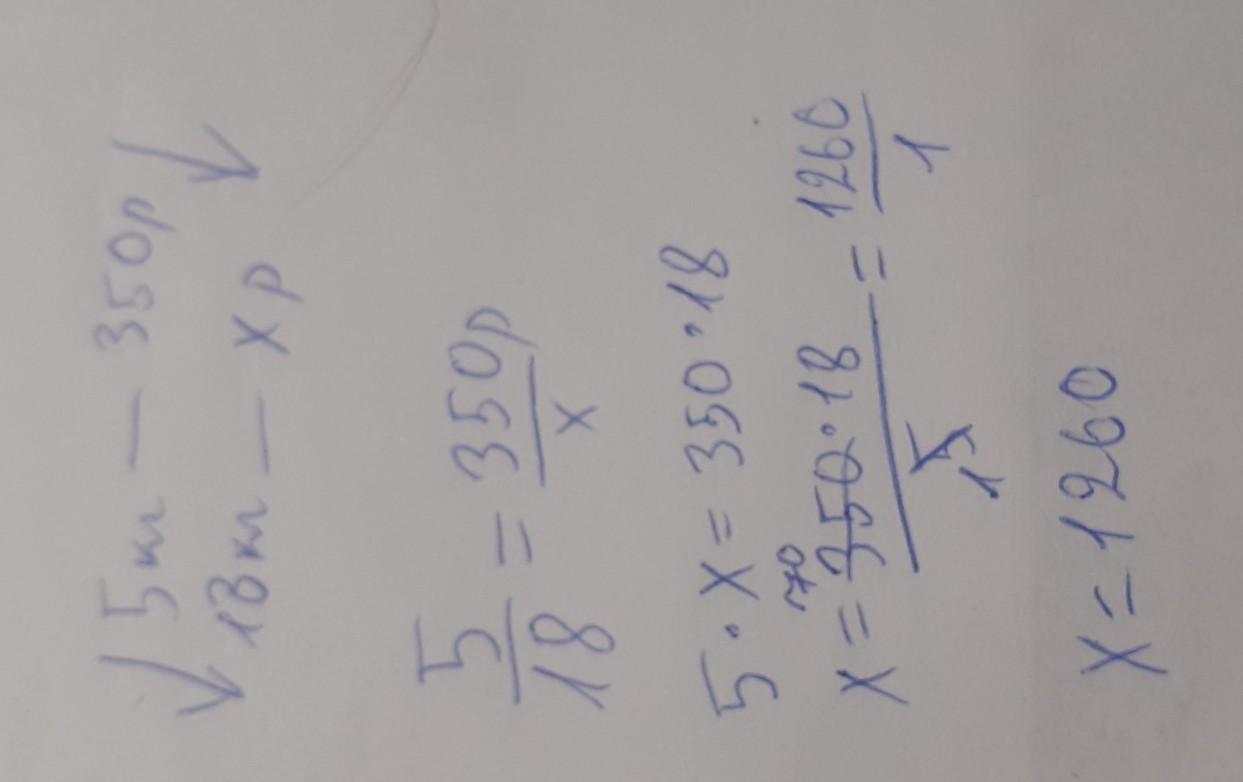 ↓ 5м — 350р ↓
18м — х р
5/18 = 350р/х
5 · х = 350 · 18
х = 350 · 18 / 5 = 1260/1
70
1
х = 1260